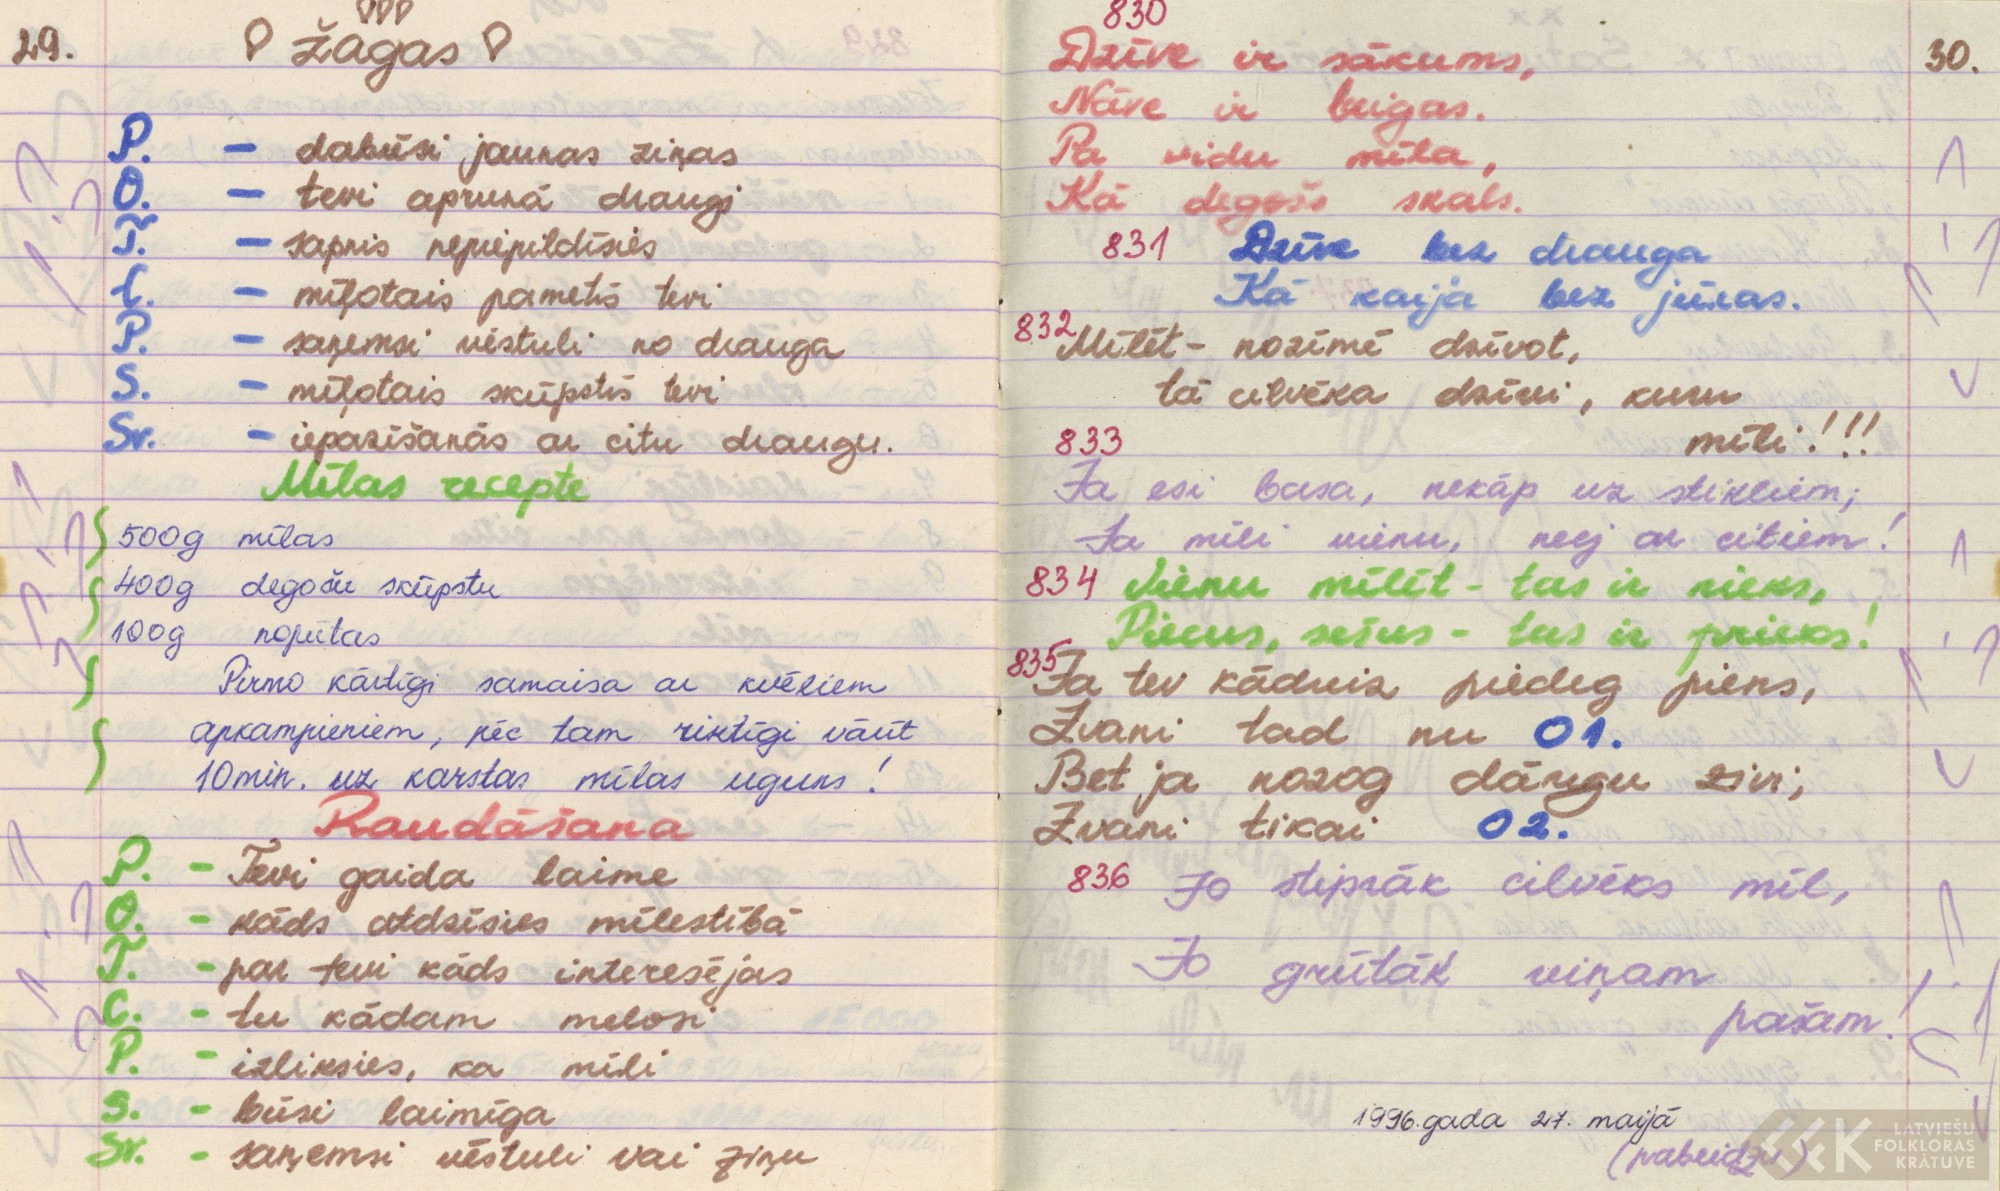 29.
Žagas
P. - dabūsi jaunas ziņas
O. - tevi aprunā draugi
T. - sapnis nepiepildīsies
C. - mīļotais pametīs tevi
P. - saņemsi vēstuli no drauga
S. - mīļotais skūpstīs tevi
Sv. - iepazīšanās ar citu draugu.
Mīlas recepte
500g mīlas
400g degošu skūpstu
100g nopūtas
Pirmo kārtīgi samaisa ar kvēliem
apkampieniem, pēc tam riktīgi vārīt
10min. uz karstas mīlas uguns!
Raudāšana
P. - Tevi gaida laime
O. - kāds atdzisies mīlestībā
T. - par tevi kāds interesējas
C. - tu kādam melosi
P. - izliksies, ka mīli
S. - būsi laimīga
Sv. - saņemsi vēstuli vai ziņu
30.
830
Dzīve ir sākums,
Nāve ir beigas.
Pa vidu mīla,
Kā degošs skals.
831 Dzīve bez drauga
Kā kaija bez jūras.
832 Mīlēt - nozīmē dzīvot,
tā cilvēka dzīvi, kuru
mīli!!!
833
Ja esi basa, nekāp uz stikliem;
Ja mīli vienu, neej ar citiem!
834 Vienu mīlēt - tas ir nieks,
Piecus, sešus - tas ir prieks!
835 Ja tev kādreiz piedeg piens,
Zvani tad nu 01.
Bet ja nozog dārgu zivi;
Zvani tikai 02.
836 Jo stiprāk cilvēks mīl,
Jo grūtāk viņam
pašam!
1996.gada 27. maijā
(pabeidzu)
LATVIEŠU
FOLKLORAS
KRĀTUVE